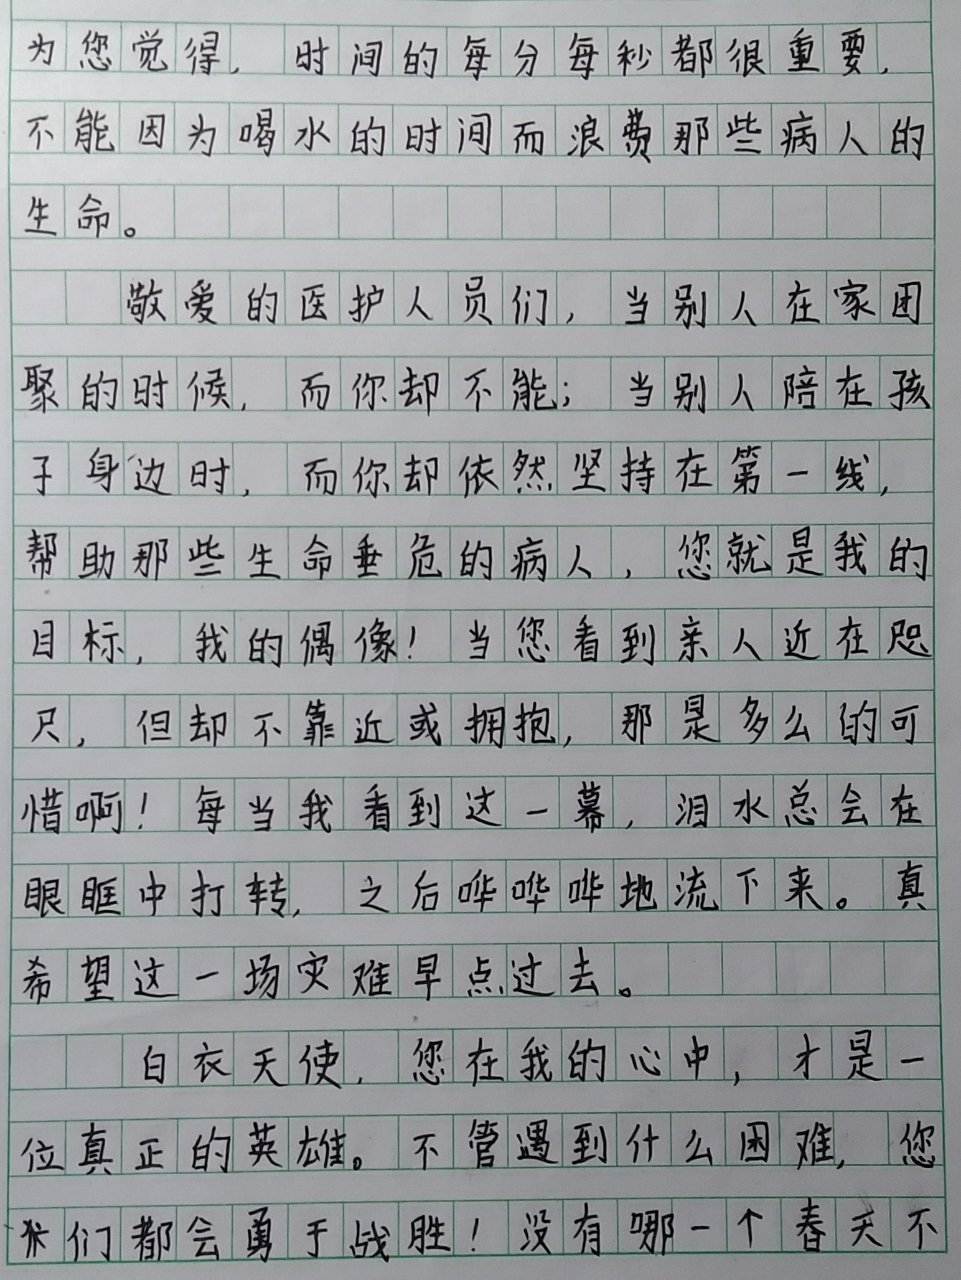 为您觉得，时间的每分每秒都很重要，
不能因为喝水的时间而浪费那些病人的
生命。
敬爱的医护人员们，当别人在家团
聚的时候，而你却不能；当别人陪在孩
子身边时，而你却依然坚持在第一线，
帮助那些生命垂危的病人，您就是我的
目标，我的偶像！当您看到亲人近在咫
尺，但却不靠近或拥抱，那是多么的可
惜啊！每当我看到这一幕，泪水总会在
眼眶中打转，之后哗哗哗地流下来。真
希望这一场灾难早点过去。
白衣天使，您在我的心中，才是一
位真正的英雄。不管遇到什么困难，您
们都会勇于战胜！没有哪一个春天不